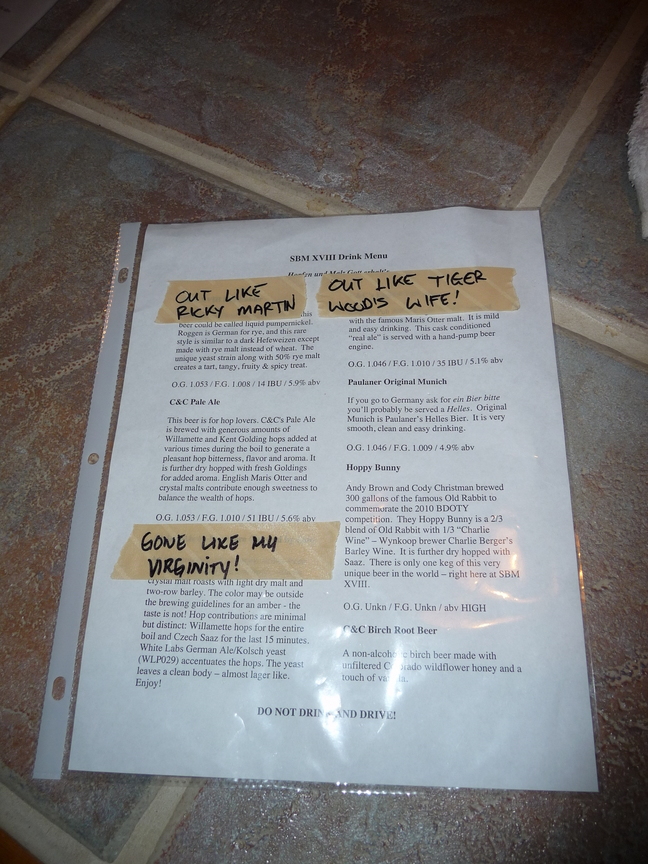 SBM XVIII Drink Menu
Hopfen und Malz Gott erhalt's
OUT LIKE
RICKY MARTIN
this
beer could be called liquid pumpernickel.
Roggen is German for rye, and this rare
style is similar to a dark Hefeweizen except
made with rye malt instead of wheat. The
unique yeast strain along with 50% rye malt
creates a tart, tangy, fruity & spicy treat.
O.G. 1.053 / F.G. 1.008 / 14 IBU / 5.9% abv
C&C Pale Ale
This beer is for hop lovers. C&C's Pale Ale
is brewed with generous amounts of
Willamette and Kent Golding hops added at
various times during the boil to generate a
pleasant hop bitterness, flavor and aroma. It
is further dry hopped with fresh Goldings
for added aroma. English Maris Otter and
crystal malts contribute enough sweetness to
balance the wealth of hops.
O.G. 1.053 / F.G. 1.010 / 51 IBU / 5.6% abv
GONE LIKE MY
VIRGINITY!
crystal malt roasts with light dry malt and
two-row barley. The color may be outside
the brewing guidelines for an amber - the
taste is not! Hop contributions are minimal
but distinct: Willamette hops for the entire
boil and Czech Saaz for the last 15 minutes.
White Labs German Ale/Kolsch yeast
(WLP029) accentuates the hops. The yeast
leaves a clean body – almost lager like.
Enjoy!
OUT LIKE TIGER
WOODS WIFE!
with the famous Maris Otter malt. It is mild
and easy drinking. This cask conditioned
"real ale" is served with a hand-pump beer
engine.
O.G. 1.046 / F.G. 1.010 / 35 IBU / 5.1% abv
Paulaner Original Munich
If you go to Germany ask for ein Bier bitte
you'll probably be served a Helles. Original
Munich is Paulaner's Helles Bier. It is very
smooth, clean and easy drinking.
O.G. 1.046 / F.G. 1.009 / 4.9% abv
Hoppy Bunny
Andy Brown and Cody Christman brewed
300 gallons of the famous Old Rabbit to
commemorate the 2010 BDOTY
competition. They Hoppy Bunny is a 2/3
blend of Old Rabbit with 1/3 "Charlie
Wine" – Wynkoop brewer Charlie Berger's
Barley Wine. It is further dry hopped with
Saaz. There is only one keg of this very
unique beer in the world – right here at SBM
XVIII.
O.G. Unkn / F.G. Unkn / abv HIGH
C&C Birch Root Beer
A non-alcoholic birch beer made with
unfiltered Colorado wildflower honey and a
touch of vanilla.
DO NOT DRINK AND DRIVE!